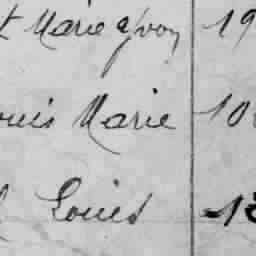 t Marie Yvon 19
ouis Marie 10
Louis 18